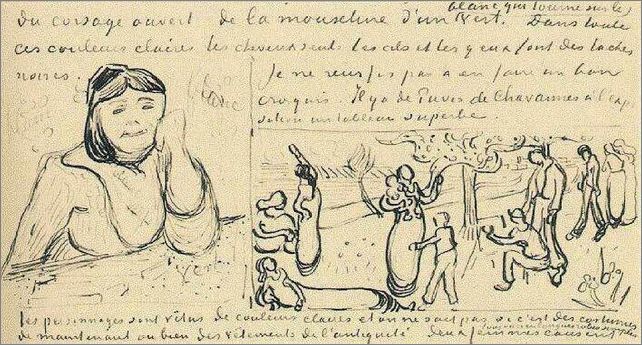 blanc qui tourne sur le
du corsage ouvert de la mousseline d'un vert. Dans toute
ces couleurs claires les cheveux seuls les cils et les yeux font des taches
noires.
Je ne reussis pas a en faire un bon
croquis. Il y a de Puvis de Chavannes a l'exp
osition un tableau superbe.
blanc
les personnages sont vêtus de couleurs claires et on ne sait pas si c'est des costumes
de maintenant ou bien des vêtements de l'antiquité deux femmes causent